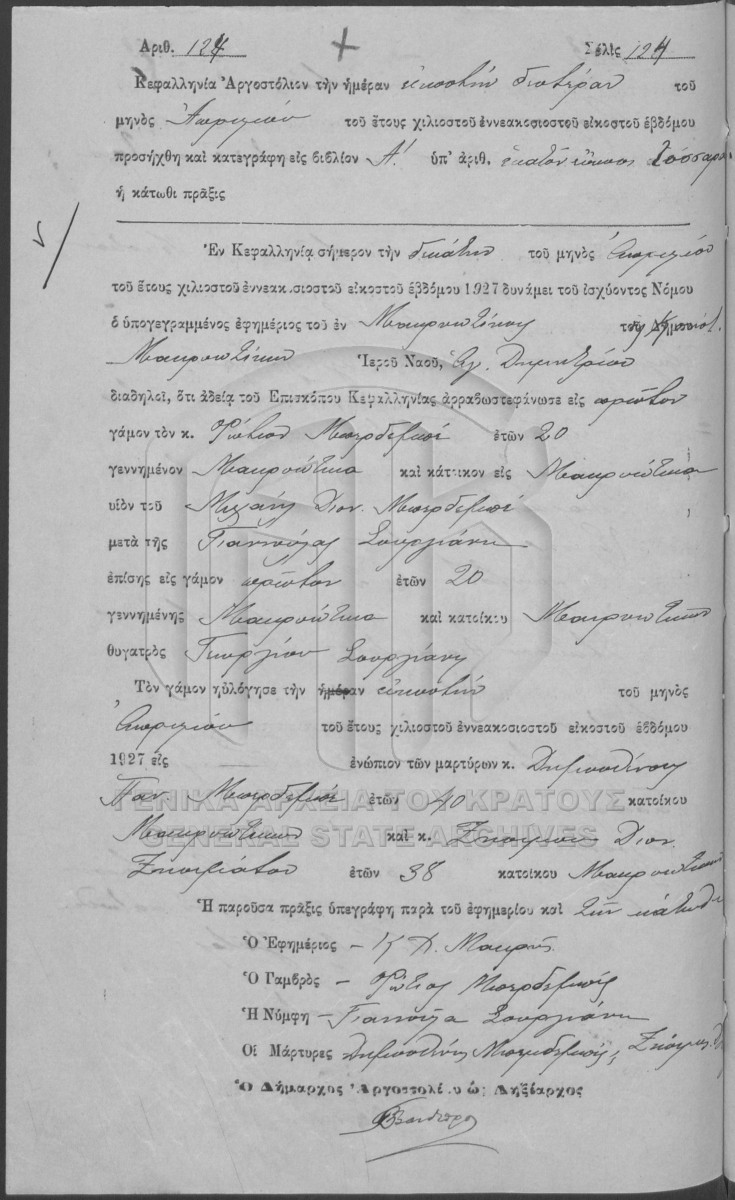 Αριθ. 124 Σελὶς 124
Κεφαλληνία Ἀργοστόλιον τὴν ἡμέραν εἰκοστὴν δευτέραν τοῦ
μηνὸς Ἀπριλίου τοῦ ἔτους χιλιοστοῦ ἐννεακοσιοστοῦ εἰκοστοῦ ἑβδόμου
προσήχθη καὶ κατεγράφη εἰς βιβλίον Α! ὑπ' ἀριθ. ἑκατὸν εἴκοσι τέσσαρα
ἡ κάτωθι πρᾶξις
Ἐν Κεφαλληνίᾳ σήμερον τὴν δεκάτην τοῦ μηνὸς Ἀπριλίου
τοῦ ἔτους χιλιοστοῦ ἐννεακοσιοστοῦ εἰκοστοῦ ἑβδόμου 1927 δυνάμει τοῦ ἰσχύοντος Νόμου
ὁ ὑπογεγραμμένος ἐφημέριος τοῦ ἐν Μακρυώτικα
Μακρυωτίκων Ἱεροῦ Ναοῦ, Ἁγ. Δημητρίου
διαδηλοῖ, ὅτι ἀδείᾳ τοῦ Ἐπισκόπου Κεφαλληνίας ἀρραβωστεφάνωσε εἰς πρῶτον
γάμον τὸν κ. Φώτιον Μπερδεμπέ ἐτῶν 20
γεννημένον Μακρυώτικα καὶ κάτοικον εἰς Μακρυώτικα
υἱὸν τοῦ Μιχαὴλ Διον. Μπερδεμπέ
μετὰ τῆς Γιαννούλας Σουργιάνη
ἐπίσης εἰς γάμον πρῶτον ἐτῶν 20
γεννημένης Μακρυώτικα καὶ κατοίκου Μακρυωτίκων
θυγατρὸς Γεωργίου Σουργιάνη
Τὸν γάμον ηὐλόγησε τὴν ἡμέραν εἰκοστὴν τοῦ μηνὸς
Ἀπριλίου τοῦ ἔτους χιλιοστοῦ ἐννεακοσιοστοῦ εἰκοστοῦ ἑβδόμου
1927 εἰς ἐνώπιον τῶν μαρτύρων κ. Δημοσθένους
Παν. Μπερδεμπέ ἐτῶν 40 κατοίκου
ΓΕΝΙΚΑ ΑΡΧΕΙΑ ΤΟΥ ΚΡΑΤΟΥΣ
Μακρυωτίκων καὶ κ. Διον.
GENERAL STATE ARCHIVES
ἐτῶν 38 κατοίκου Μακρυωτίκων
Ἡ παροῦσα πρᾶξις ὑπεγράφη παρὰ τοῦ ἐφημερίου καὶ τῶν κάτωθι
Ὁ Ἐφημέριος – Μακρῆς
Ὁ Γαμβρὸς – Φώτιος Μπερδεμπές
Ἡ Νύμφη – Γιαννούλα Σουργιάνη
Οἱ Μάρτυρες Δημοσθένης Μπερδεμπές,
Ὁ Δήμαρχος Ἀργοστολίου ὡς Ληξίαρχος